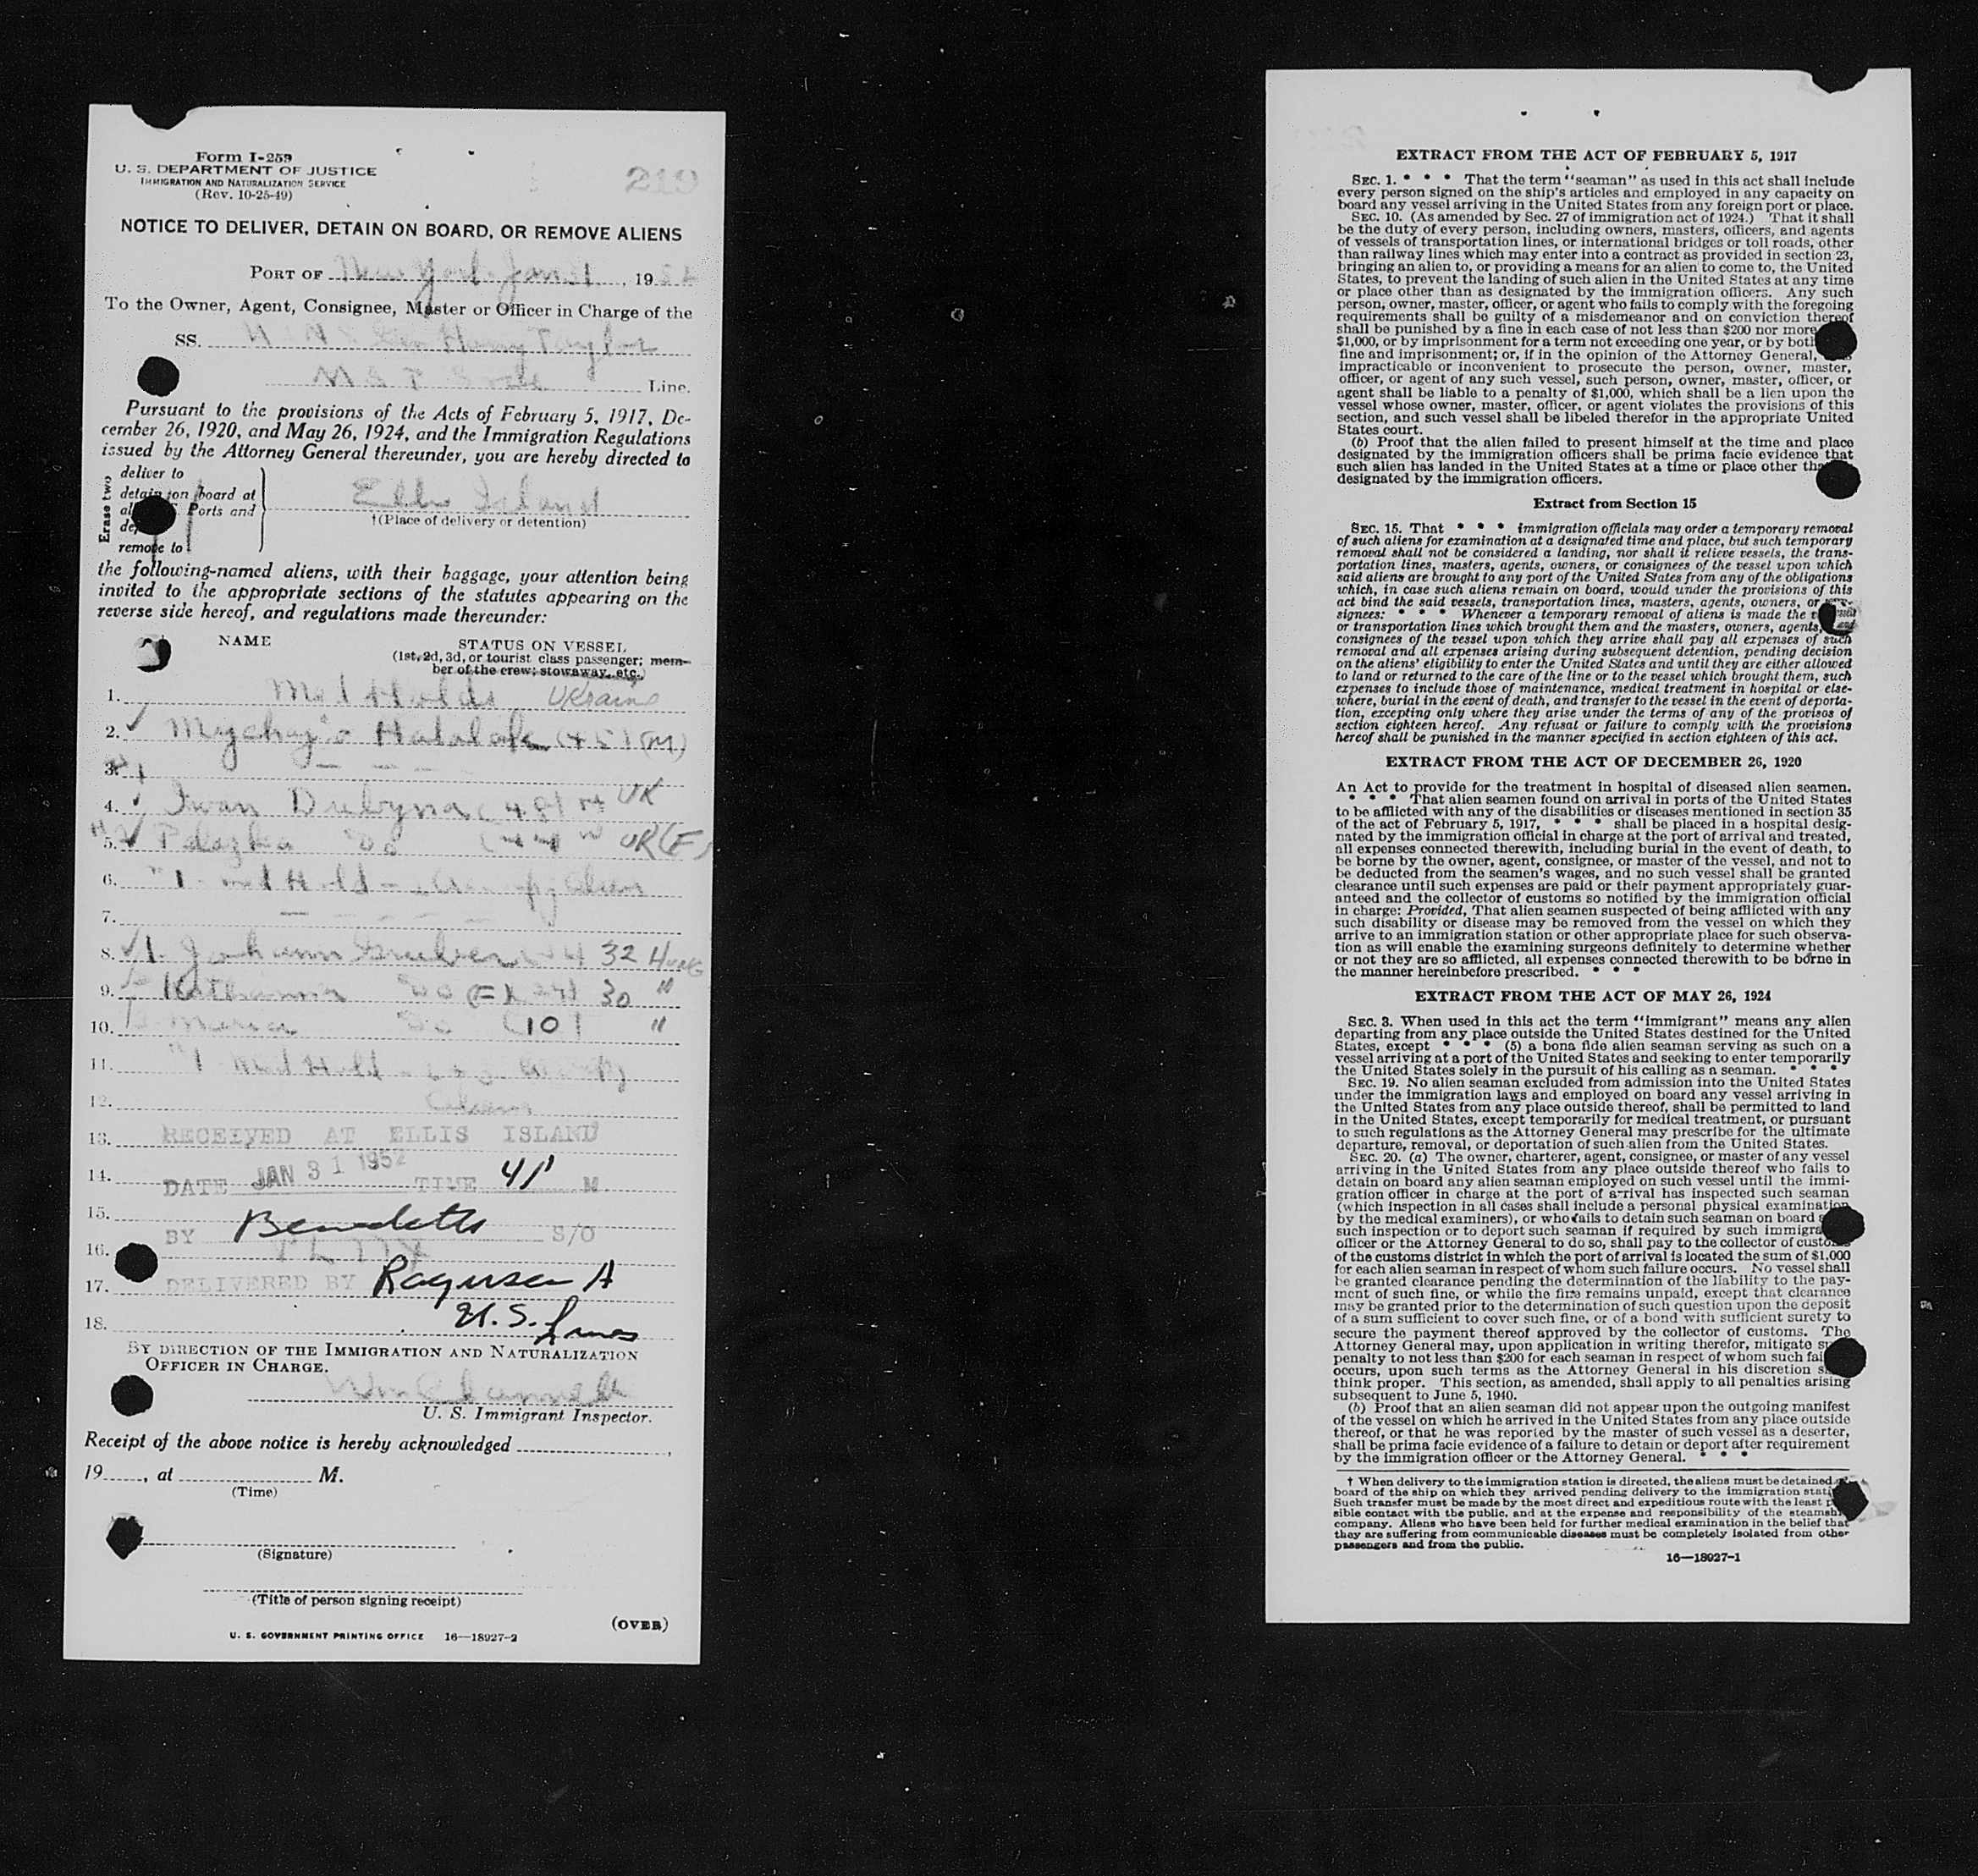 Form I-259
U. S. DEPARTMENT OF JUSTICE
IMMIGRATION AND NATURALIZATION SERVICE
(Rev. 10-25-49)
219
NOTICE TO DELIVER, DETAIN ON BOARD, OR REMOVE ALIENS
PORT OF New York Jan 31, 1952
To the Owner, Agent, Consignee, Master or Officer in Charge of the
SS. Gen Harry Taylor
M S T S Line.
Pursuant to the provisions of the Acts of February 5, 1917, De-
cember 26, 1920, and May 26, 1924, and the Immigration Regulations
issued by the Attorney General thereunder, you are hereby directed to
Erase two
deliver to
detain on board at
Ports and
remove to
Ellis Island
†(Place of delivery or detention)
the following-named aliens, with their baggage, your attention being
invited to the appropriate sections of the statutes appearing on the
reverse side hereof, and regulations made thereunder:
NAME STATUS ON VESSEL
(1st, 2d, 3d, or tourist class passenger; mem-
ber of the crew; stowaway, etc.)
1. Med Holds Ukraine
2. Halalak (45) (M)
3.
4. Iwan Dubyna (48) M UK
5. Do (44 UK (F)
6. #1 - med Hold
7.
8. 1. Johann Gruber 32 Hung
9. Katharina Do (F) 30 "
10. Maria Do (10) "
11. #1 Med Hold
12.
13. RECEIVED AT ELLIS ISLAND
14. DATE JAN 31 1952 TIME M
15. BY S/O
16.
17. DELIVERED BY
18. U.S. Lines
BY DIRECTION OF THE IMMIGRATION AND NATURALIZATION
OFFICER IN CHARGE.
U. S. Immigrant Inspector.
Receipt of the above notice is hereby acknowledged ,
19 , at M.
(Time)
(Signature)
(Title of person signing receipt)
(OVER)
U. S. GOVERNMENT PRINTING OFFICE 16—18927-2
EXTRACT FROM THE ACT OF FEBRUARY 5, 1917
SEC. 1. * * * That the term "seaman" as used in this act shall include
every person signed on the ship's articles and employed in any capacity on
board any vessel arriving in the United States from any foreign port or place.
SEC. 10. (As amended by Sec. 27 of immigration act of 1924.) That it shall
be the duty of every person, including owners, masters, officers, and agents
of vessels of transportation lines, or international bridges or toll roads, other
than railway lines which may enter into a contract as provided in section 23,
bringing an alien to, or providing a means for an alien to come to, the United
States, to prevent the landing of such alien in the United States at any time
or place other than as designated by the immigration officers. Any such
person, owner, master, officer, or agent who fails to comply with the foregoing
requirements shall be guilty of a misdemeanor and on conviction thereof
shall be punished by a fine in each case of not less than $200 nor more
$1,000, or by imprisonment for a term not exceeding one year, or by both
fine and imprisonment; or, if in the opinion of the Attorney General,
impracticable or inconvenient to prosecute the person, owner, master,
officer, or agent of any such vessel, such person, owner, master, officer, or
agent shall be liable to a penalty of $1,000, which shall be a lien upon the
vessel whose owner, master, officer, or agent violates the provisions of this
section, and such vessel shall be libeled therefor in the appropriate United
States court.
(b) Proof that the alien failed to present himself at the time and place
designated by the immigration officers shall be prima facie evidence that
such alien has landed in the United States at a time or place other than
designated by the immigration officers.
Extract from Section 15
SEC. 15. That * * * immigration officials may order a temporary removal
of such aliens for examination at a designated time and place, but such temporary
removal shall not be considered a landing, nor shall it relieve vessels, the trans-
portation lines, masters, agents, owners, or consignees of the vessel upon which
said aliens are brought to any port of the United States from any of the obligations
which, in case such aliens remain on board, would under the provisions of this
act bind the said vessels, transportation lines, masters, agents, owners, or
signees: * * * Whenever a temporary removal of aliens is made the
or transportation lines which brought them and the masters, owners, agents,
consignees of the vessel upon which they arrive shall pay all expenses of such
removal and all expenses arising during subsequent detention, pending decision
on the aliens' eligibility to enter the United States and until they are either allowed
to land or returned to the care of the line or to the vessel which brought them, such
expenses to include those of maintenance, medical treatment in hospital or else-
where, burial in the event of death, and transfer to the vessel in the event of deporta-
tion, excepting only where they arise under the terms of any of the provisos of
section eighteen hereof. Any refusal or failure to comply with the provisions
hereof shall be punished in the manner specified in section eighteen of this act.
EXTRACT FROM THE ACT OF DECEMBER 26, 1920
An Act to provide for the treatment in hospital of diseased alien seamen.
* * * That alien seamen found on arrival in ports of the United States
to be afflicted with any of the disabilities or diseases mentioned in section 35
of the act of February 5, 1917, * * * shall be placed in a hospital desig-
nated by the immigration official in charge at the port of arrival and treated,
all expenses connected therewith, including burial in the event of death, to
be borne by the owner, agent, consignee, or master of the vessel, and not to
be deducted from the seamen's wages, and no such vessel shall be granted
clearance until such expenses are paid or their payment appropriately guar-
anteed and the collector of customs so notified by the immigration official
in charge: Provided, That alien seamen suspected of being afflicted with any
such disability or disease may be removed from the vessel on which they
arrive to an immigration station or other appropriate place for such observa-
tion as will enable the examining surgeons definitely to determine whether
or not they are so afflicted, all expenses connected therewith to be borne in
the manner hereinbefore prescribed. * * *
EXTRACT FROM THE ACT OF MAY 26, 1924
SEC. 3. When used in this act the term "immigrant" means any alien
departing from any place outside the United States destined for the United
States, except * * * (5) a bona fide alien seaman serving as such on a
vessel arriving at a port of the United States and seeking to enter temporarily
the United States solely in the pursuit of his calling as a seaman. * * * *
SEC. 19. No alien seaman excluded from admission into the United States
under the immigration laws and employed on board any vessel arriving in
the United States from any place outside thereof, shall be permitted to land
in the United States, except temporarily for medical treatment, or pursuant
to such regulations as the Attorney General may prescribe for the ultimate
departure, removal, or deportation of such alien from the United States.
SEC. 20. (a) The owner, charterer, agent, consignee, or master of any vessel
arriving in the United States from any place outside thereof who fails to
detain on board any alien seaman employed on such vessel until the immi-
gration officer in charge at the port of arrival has inspected such seaman
(which inspection in all cases shall include a personal physical examination
by the medical examiners), or who fails to detain such seaman on board
such inspection or to deport such seaman if required by such
officer or the Attorney General to do so, shall pay to the collector of
of the customs district in which the port of arrival is located the sum of $1,000
for each alien seaman in respect of whom such failure occurs. No vessel shall
be granted clearance pending the determination of the liability to the pay-
ment of such fine, or while the fine remains unpaid, except that clearance
may be granted prior to the determination of such question upon the deposit
of a sum sufficient to cover such fine, or of a bond with sufficient surety to
secure the payment thereof approved by the collector of customs. The
Attorney General may, upon application in writing therefor, mitigate
penalty to not less than $200 for each seaman in respect of whom such
occurs, upon such terms as the Attorney General in his discretion
think proper. This section, as amended, shall apply to all penalties arising
subsequent to June 5, 1940.
(b) Proof that an alien seaman did not appear upon the outgoing manifest
of the vessel on which he arrived in the United States from any place outside
thereof, or that he was reported by the master of such vessel as a deserter,
shall be prima facie evidence of a failure to detain or deport after requirement
by the immigration officer or the Attorney General. * * *
† When delivery to the immigration station is directed, the aliens must be detained
board of the ship on which they arrived pending delivery to the immigration
Such transfer must be made by the most direct and expeditious route with the least
sible contact with the public, and at the expense and responsibility of the
company. Aliens who have been held for further medical examination in the belief that
they are suffering from communicable diseases must be completely isolated from other
passengers and from the public.
16—18927-1